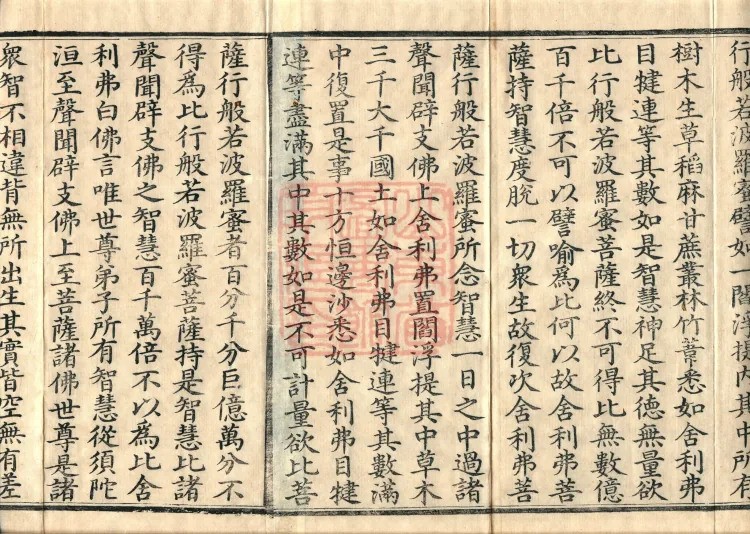 行般若波羅蜜譬如一閻浮提內其中所有
樹木生草稻麻甘蔗叢林竹葦悉如舍利弗
目犍連等其數如是智慧神足其德無量欲
比行般若波羅蜜菩薩終不可得比無數億
百千倍不可以譬喻爲比何以故舍利弗菩
薩持智慧度脫一切衆生故復次舍利弗菩
薩行般若波羅蜜所念智慧一日之中過諸
聲聞辟支佛上舍利弗置閻浮提其中草木
三千大千國土如舍利弗目犍連等其數滿
中復置是事十方恒邊沙悉如舍利弗目犍
連等盡滿其中其數如是不可計量欲比菩
薩行般若波羅蜜者百分千分巨億萬分不
得爲比行般若波羅蜜菩薩持是智慧比諸
聲聞辟支佛之智慧百千萬倍不以爲比舍
利弗白佛言唯世尊弟子所有智慧從須陀
洹至聲聞辟支佛上至菩薩諸佛世尊是諸
衆智不相違背無所出生其實皆空無有差